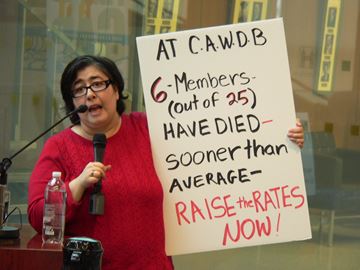 AT C.A.W.D.B
6-Members-
(out of 25)
HAVE DIED-
sooner than
AVERAGE-
RAISE the RATES
NOW!